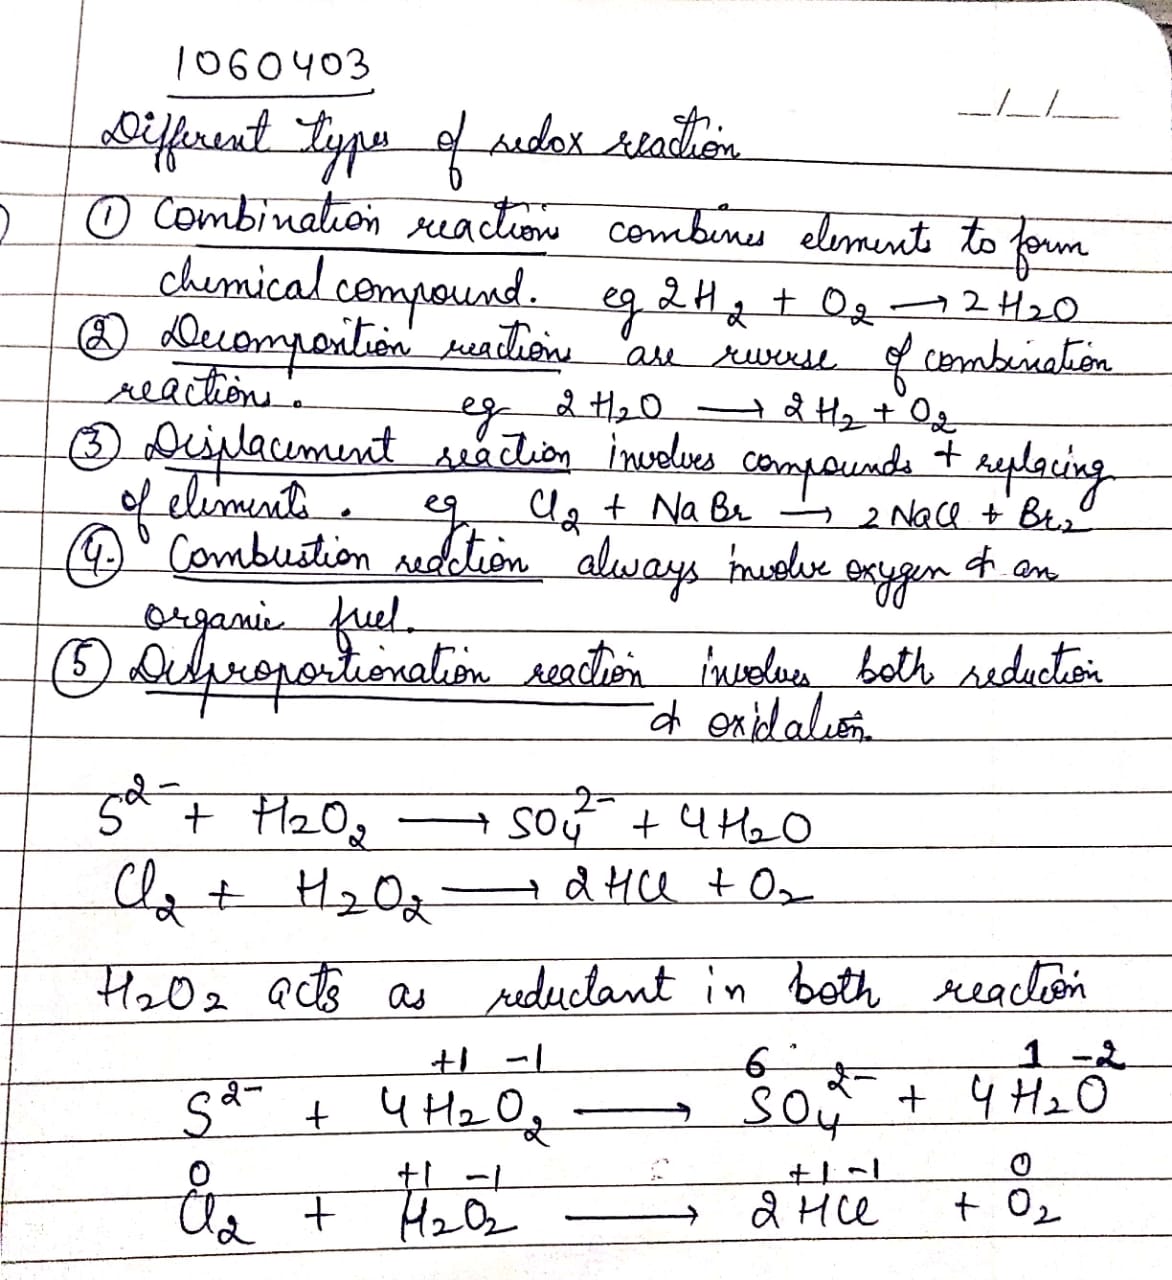 1060403
_/_/__
Different types of redox reaction
① Combination reactions combines elements to form
chemical compound. eg 2H₂ + O₂ → 2H₂O
② Decomposition reactions are reverse of combination
reactions. eg 2H₂O → 2H₂ + O₂
③ Displacement reaction involves compounds + replacing
of elements. eg Cl₂ + NaBr → 2NaCl + Br₂
④. Combustion reaction always involve oxygen & an
organic fuel.
⑤ Disproportionation reaction involves both reduction
& oxidation.
S²⁻ + H₂O₂ → SO₄²⁻ + 4H₂O
Cl₂ + H₂O₂ → 2HCl + O₂
H₂O₂ acts as reductant in both reaction
+1 -1 6 1 -2
S²⁻ + 4H₂O₂ → SO₄²⁻ + 4H₂O
0 +1 -1 +1 -1 0
Cl₂ + H₂O₂ → 2HCl + O₂